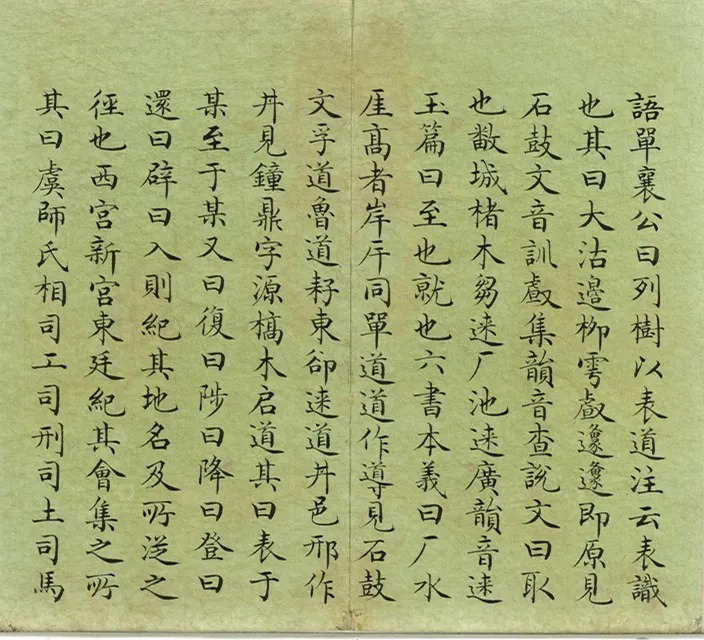 語單襄公曰列樹以表道注云表識
也其曰大沽邊柳雩𠭯邍邍即原見
石鼓文音訓𠭯集韻音查說文曰㕢
也㪔城楮木芻逨厂池逨廣韻音逨
玉篇曰至也就也六書本義曰厂水
厓高者岸厈同單道道作導見石鼓
文孚道魯道耔東卻逨道丼邑邢作
丼見鐘鼎字源槁木启道其曰表于
某至于某又曰復曰陟曰降曰登曰
還曰辟曰入則紀其地名及所從之
徑也西宮新宮東廷紀其會集之所
其曰虞師氏相司工司刑司土司馬